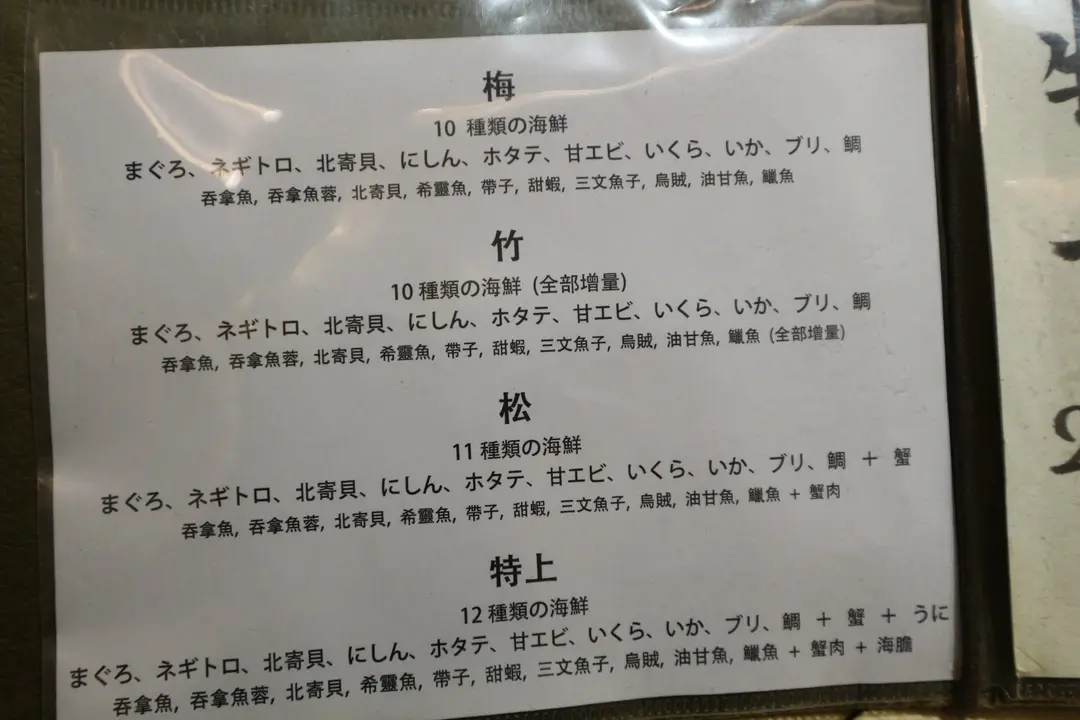 梅
10 種類の海鮮
まぐろ、ネギトロ、北寄貝、にしん、ホタテ、甘エビ、いくら、いか、ブリ、鯛
吞拿魚, 吞拿魚蓉, 北寄貝, 希靈魚, 帶子, 甜蝦, 三文魚子, 烏賊, 油甘魚, 鱲魚
竹
10 種類の海鮮 (全部增量)
まぐろ、ネギトロ、北寄貝、にしん、ホタテ、甘エビ、いくら、いか、ブリ、鯛
吞拿魚, 吞拿魚蓉, 北寄貝, 希靈魚, 帶子, 甜蝦, 三文魚子, 烏賊, 油甘魚, 鱲魚 (全部增量)
松
11 種類の海鮮
まぐろ、ネギトロ、北寄貝、にしん、ホタテ、甘エビ、いくら、いか、ブリ、鯛 ＋ 蟹
吞拿魚, 吞拿魚蓉, 北寄貝, 希靈魚, 帶子, 甜蝦, 三文魚子, 烏賊, 油甘魚, 鱲魚 + 蟹肉
特上
12 種類の海鮮
まぐろ、ネギトロ、北寄貝、にしん、ホタテ、甘エビ、いくら、いか、ブリ、鯛 ＋ 蟹 ＋ うに
吞拿魚, 吞拿魚蓉, 北寄貝, 希靈魚, 帶子, 甜蝦, 三文魚子, 烏賊, 油甘魚, 鱲魚 + 蟹肉 + 海膽